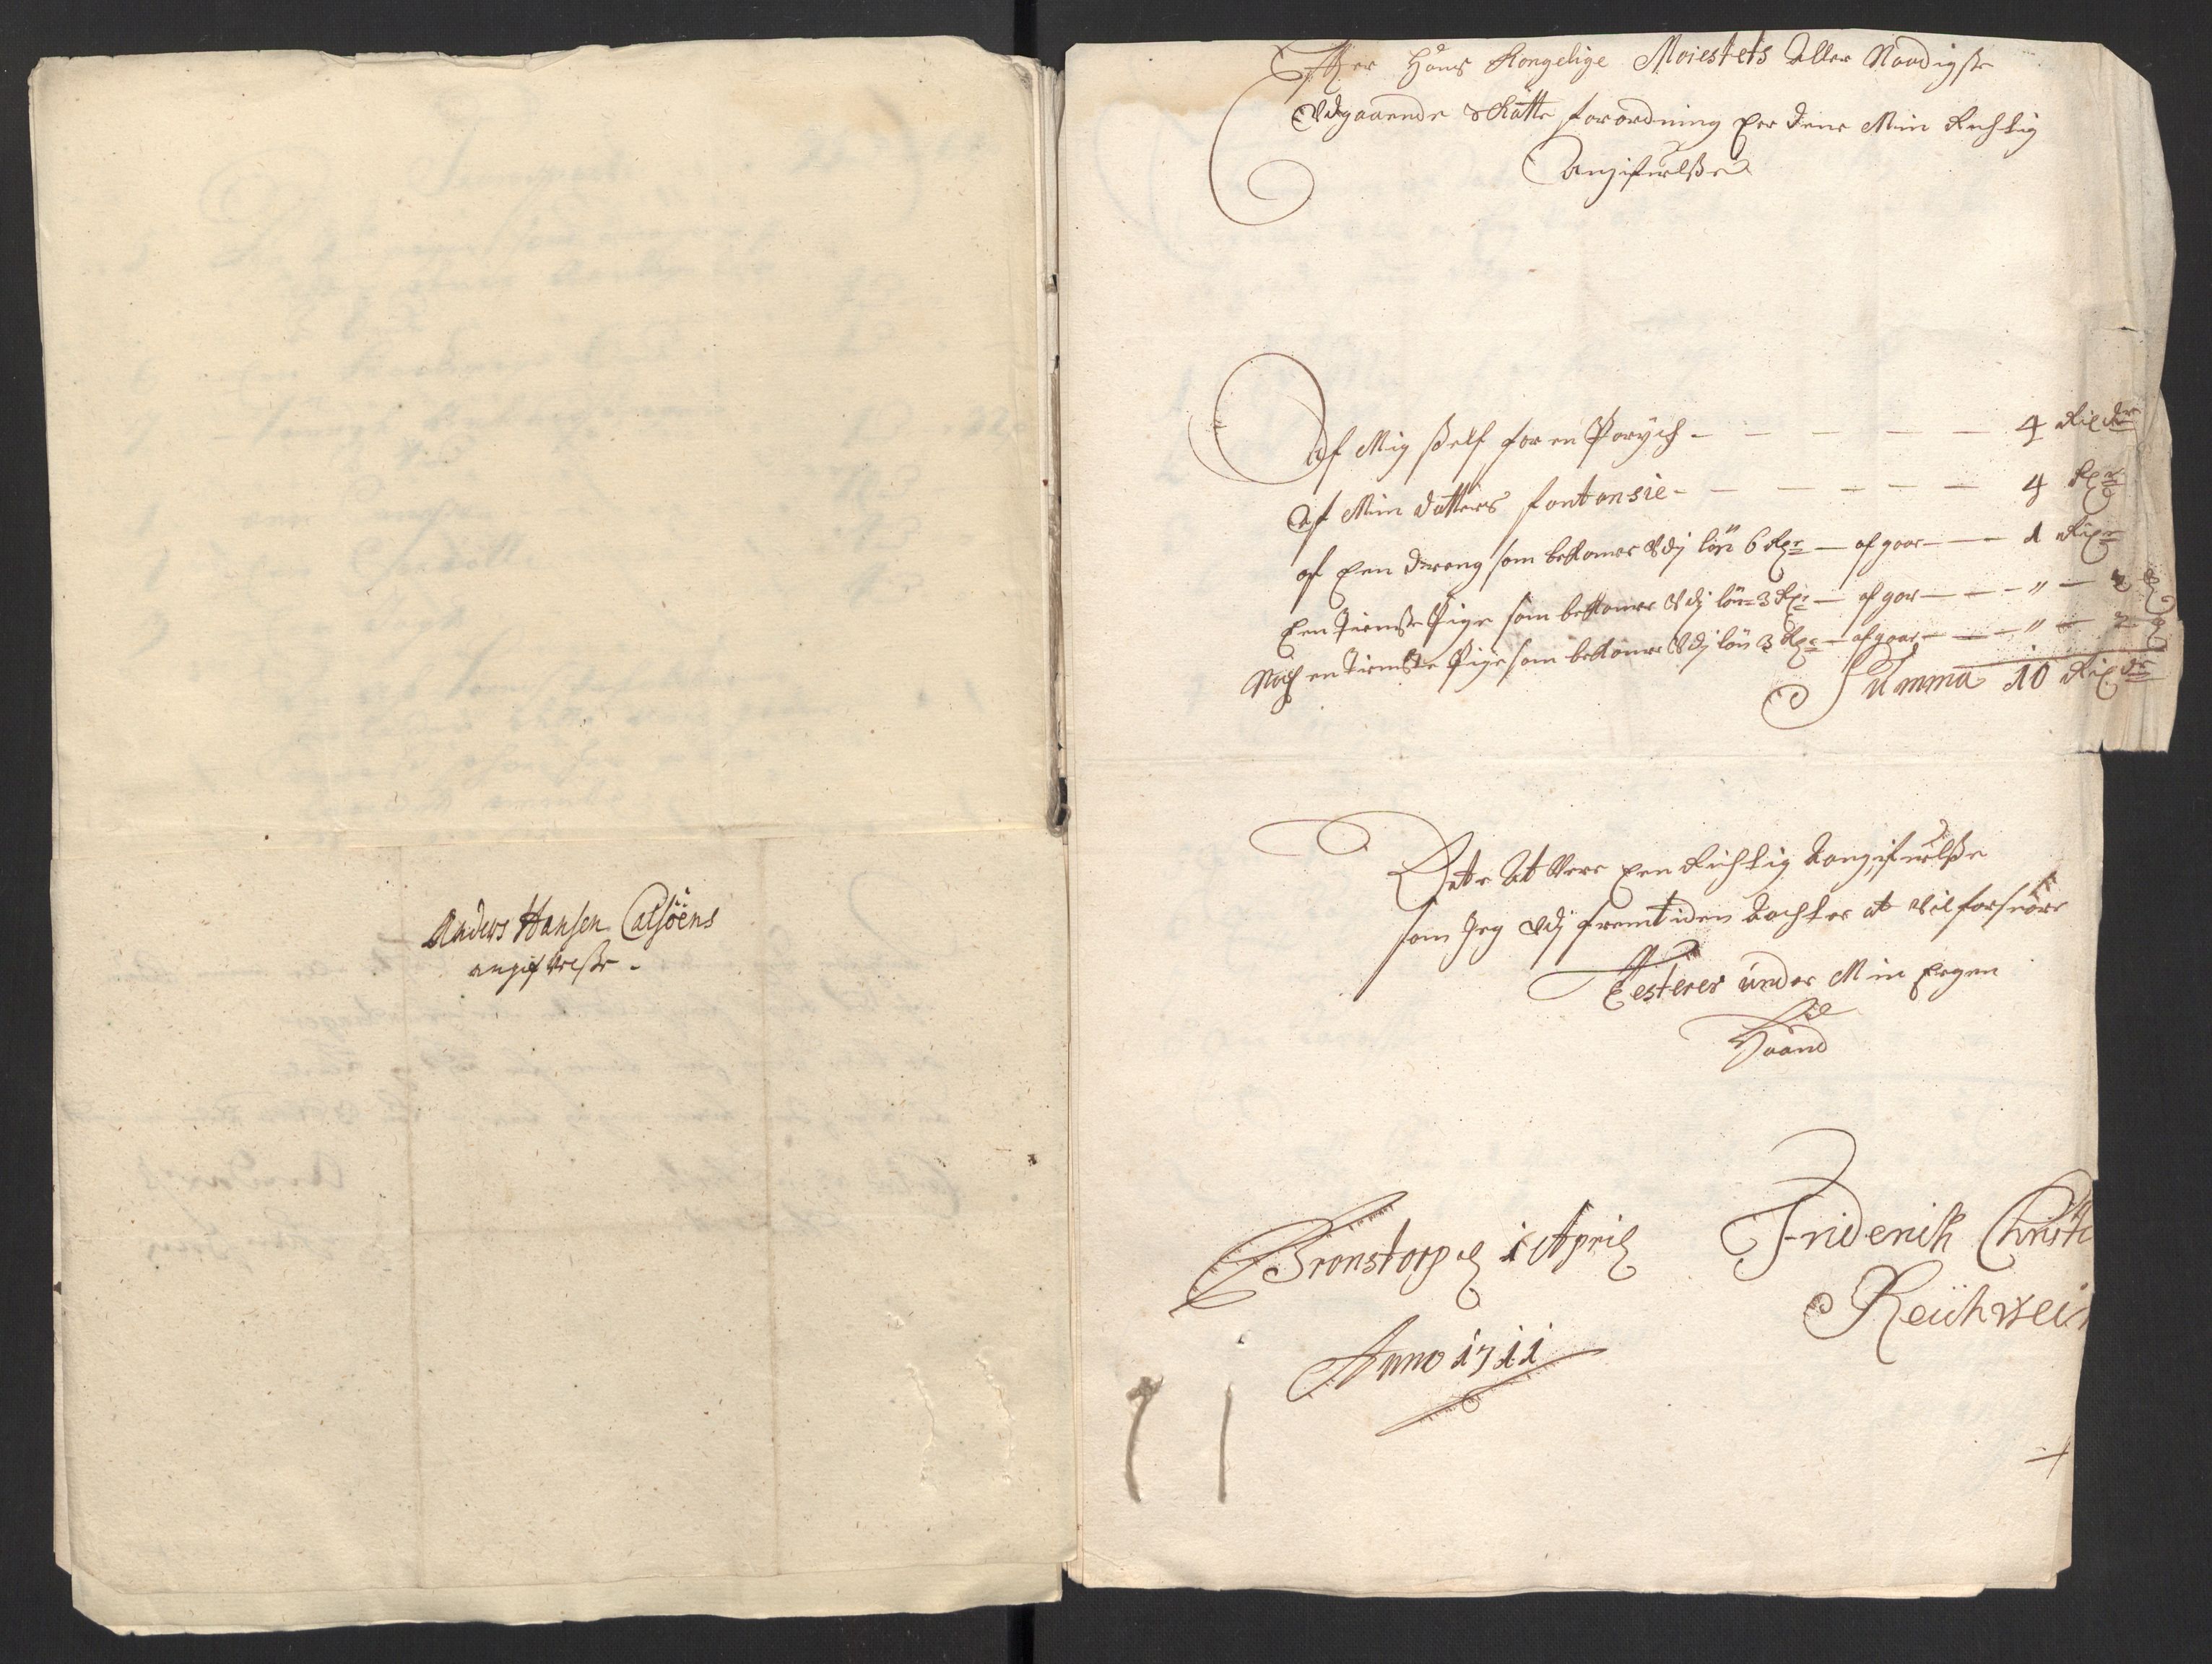 Anders Hansen Calsöens
angifvelsse.
Efter Hans Kongelige Maiestets Aller Naadigste
Udgaaende Skatte forordning Er dene Min Rigtig
Angifvelsse
Af Mig sself for en Parÿch - - - - - 4 Rixdr
Af Min datters fontansie - - - - - - 4 Rxr
af Een dreng som bekomer Udj løn 6 Rxr - afgaar - - 1 Rixr
Een tienste Pige som bekomer Udj løn 3 Rxr - afgar - - - " -
Noch en tienste Pige som bekomer Udj løn 3 Rxr - afgaar - - - " -
Summa 10 Rixdr
Dette At Vere Een Richtig Angifvelsse
som Jeg Udj fremtiden Achter at Vil forsvare
Testerer under Min Eegen
Haand
Bronstorp d 1 April
Anno 1711
Friderich Christi
Reichwein